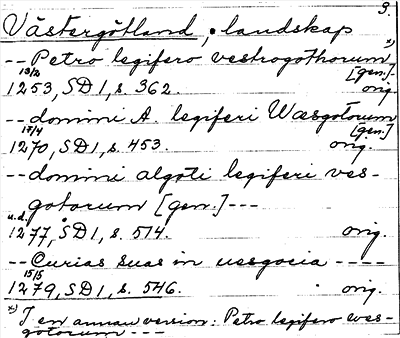 3.
Västergötland, landskap
-- Petro legifero vestrogothorum *)
[gen.]
13/2
1253, SD 1, s. 362. orig.
-- domini A. legiferi Wæsgotorum
[gen.]
17/4
1270, SD 1, s. 453. orig.
-- domini algoti legiferi ves-
gotorum [gen.] ---
u.d.
1277, SD 1, s. 514. orig.
-- Curias suas in uesgocia ----
15/5
1279, SD 1, s. 546. orig.
*) I en annan version: Petro legifero wes-
gotorum ---